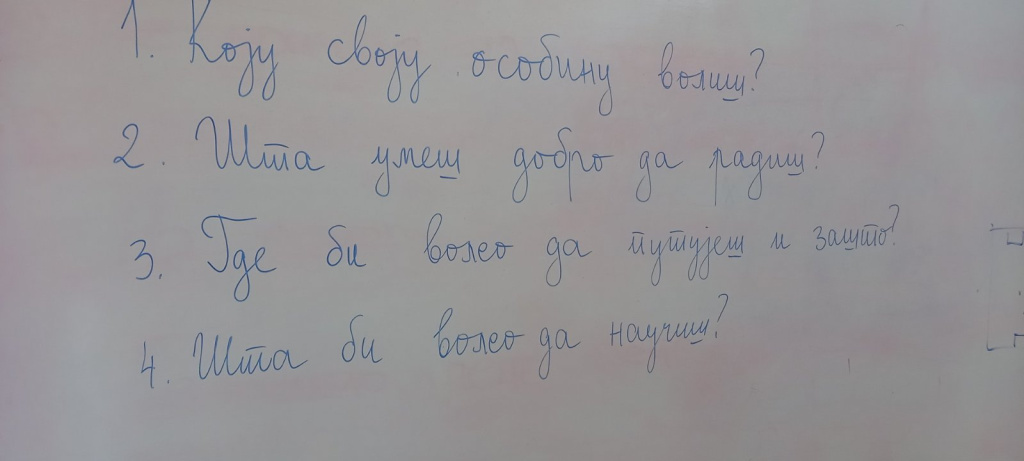 1. Коју своју особину волиш?
2. Шта умеш добро да радиш?
3. Где би волео да путујеш и зашто?
4. Шта би волео да научиш?